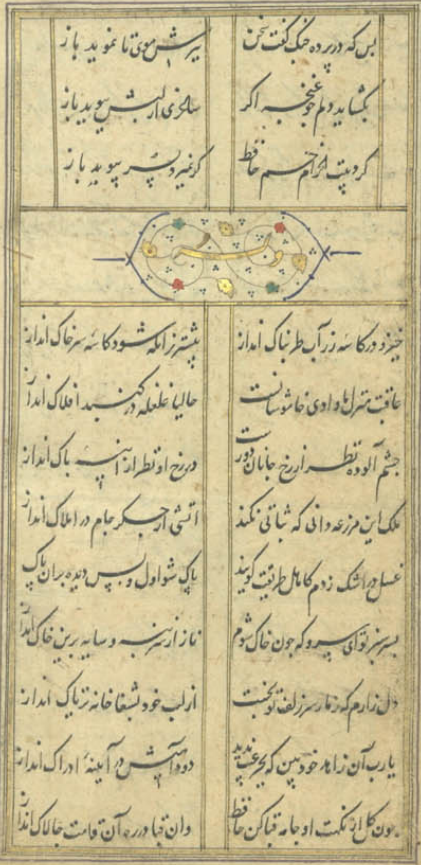 بس که در پرده چنگ گفت سخن
ببرش موی تا نموید باز
بگشاید دلم چو غنچه اگر
ساغری از لبش ببوید باز
گرد بیت الحرام خم حافظ
گر نمیرد بسر بپوید باز
وله
خیز و در کاسه زر آب طربناک انداز
پیشتر زانکه شود کاسه سر خاک انداز
عاقبت منزل ما وادی خاموشانست
حالیا غلغله در گنبد افلاک انداز
چشم آلوده نظر از رخ جانان دورست
در رخ او نظر از آینه پاک انداز
ملک این مزرعه دانی که ثباتی نکند
آتشی از جگر جام در املاک انداز
غسل در اشک زدم کاهل طریقت گویند
پاک شو اول و پس دیده بران پاک
بسر سبز تو ای سرو که چون خاک شوم
ناز از سر بنه و سایه برین خاک انداز
دل زارم که ز مار سر زلف تو بخست
از لب خود بشفاخانه تریاک انداز
یارب آن زاهد خود بین که بجز عیب ندید
دود آهیش در آیینه ادراک انداز
چون گل از نکهت او جامه قبا کن حافظ
وان قبا در ره آن قامت چالاک انداز